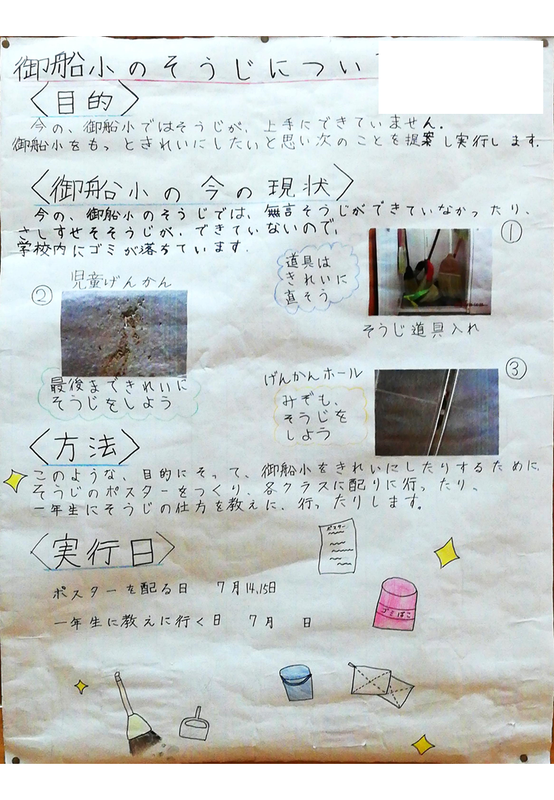 御船小のそうじについ
〈目的〉
今の、御船小ではそうじが、上手にできていません。
御船小をもっときれいにしたいと思い次のことを提案し実行します。
〈御船小の今の現状〉
今の、御船小のそうじでは、無言そうじができていなかったり、
さしすせそそうじが、できていないので、
学校内にゴミが落ちています。
①
道具は
きれいに
直そう
そうじ道具入れ
児童げんかん
②
最後まできれいに
そうじをしよう
げんかんホール
③
みぞも、
そうじを
しよう
〈方法〉
このような、目的にそって、御船小をきれいにしたりするために、
そうじのポスターをつくり、各クラスに配りに行ったり、
一年生にそうじの仕方を教えに、行ったりします。
〈実行日〉
ポスターを配る日 7月14,15日
一年生に教えに行く日 7月 日
ポスター
ゴミばこ